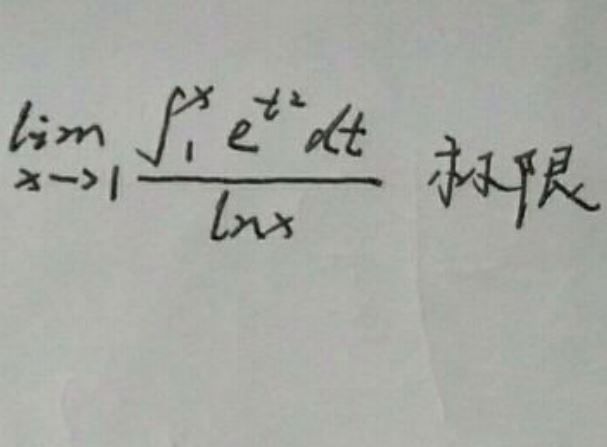 lim x→1 ∫₁ˣ e^{t²} dt / ln x 求极限